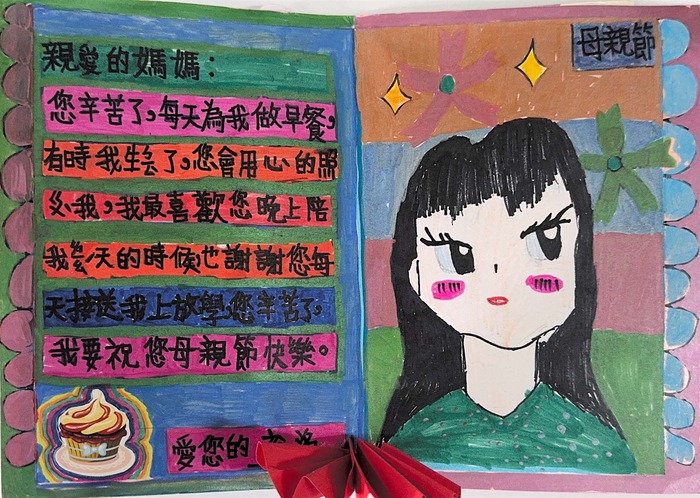 親愛的媽媽：
您辛苦了，每天為我做早餐，
有時我生氣了，您會用心的照
我，我最喜歡您晚上陪
我聊天的時候，也謝謝您每
天接送我上放學，您辛苦了，
我要祝您母親節快樂。
愛您的
母親節